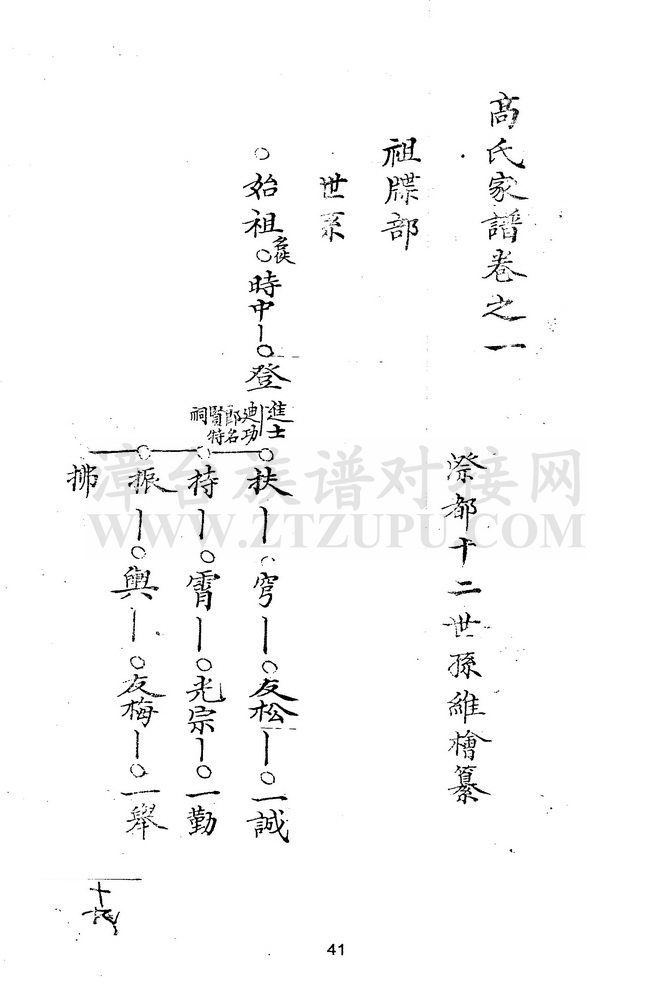 高氏家譜卷之一
漈都十二世孫維檜纂
祖牒部
世系
始祖
時中
登
進士
迪功
郎名
賢特
祠
扶 穹 友松 一誠
持 霄 光宗 一勤
振 輿 友梅 一舉
拂
漳台族谱对接网
WWW.ZTZUPU.COM
41